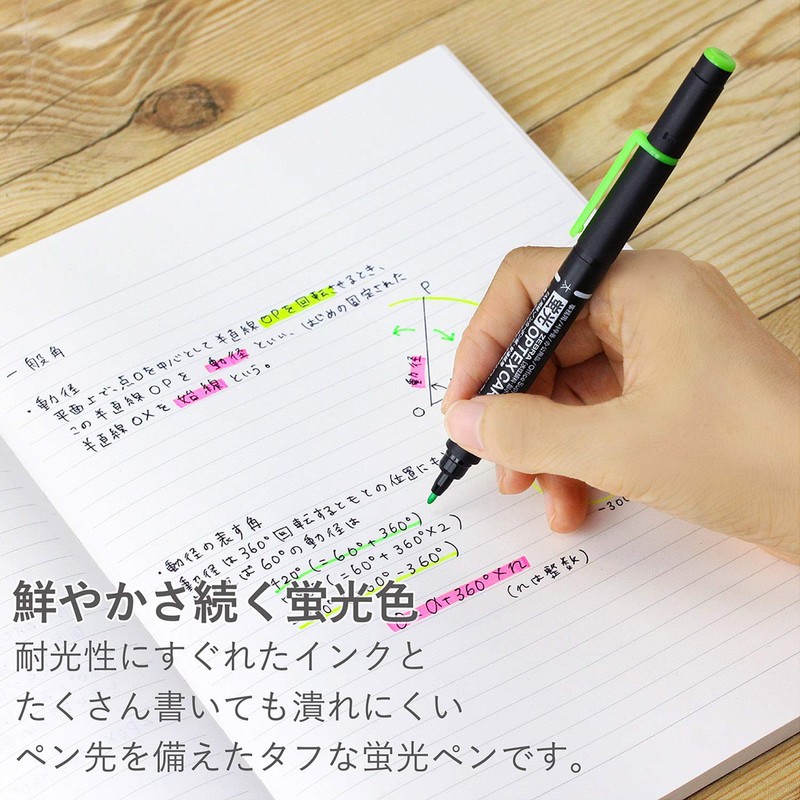 一般角
・動径
平面上で点Oを中心として半直線OPを回転させるとき、
この半直線OPを動径といい、はじめの固定された
半直線OXを始線という。
P
動径
O
動径の表す角
動径は360°回転するともとの位置にも
60°の動径は
420°(=60°+360°)
(=60°+360°×2)
60°-360°)
-300
α+360°×n
(nは整数)
蛍光 OPTEX CA
ZEBRA
太
鮮やかさ続く蛍光色
耐光性にすぐれたインクと
たくさん書いても潰れにくい
ペン先を備えたタフな蛍光ペンです。